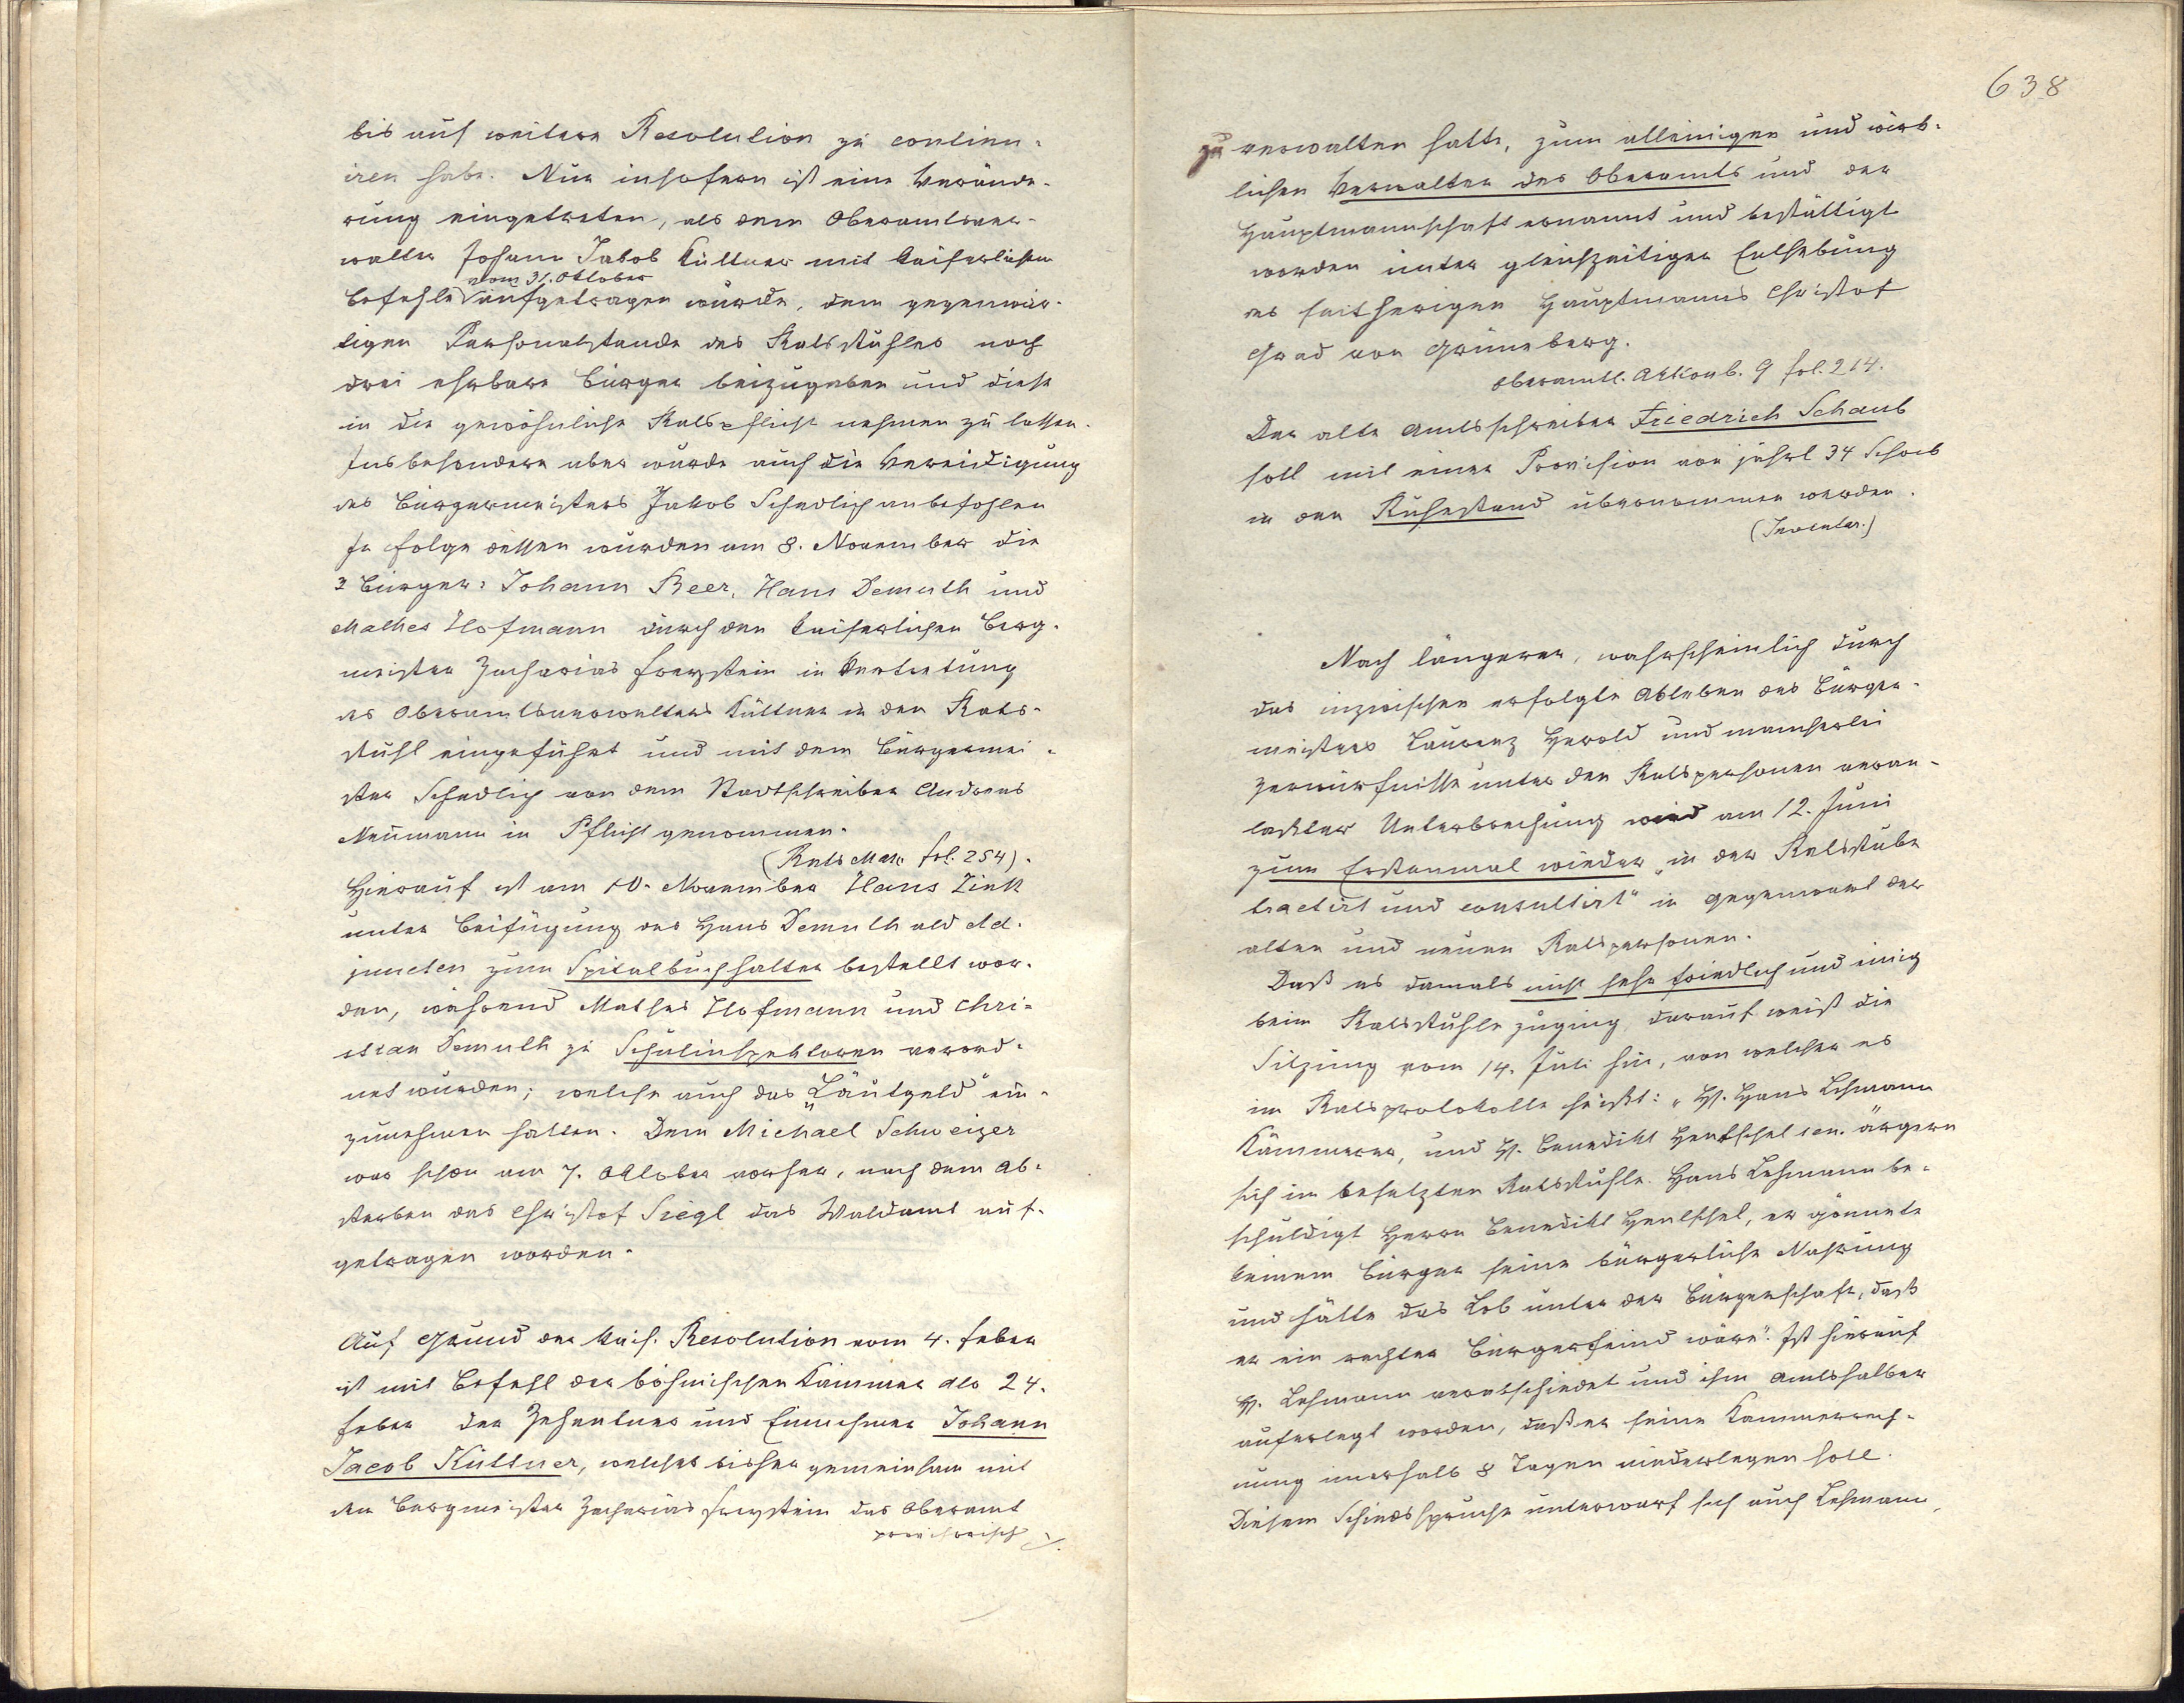 bis auf weitere Resolution zu continu-
iren habe. Nur insofern ist eine Verände-
rung eingetreten, als dem Oberamtsver-
walter Johann Jakob Küttner mit kaiserlichem
vom 31. Oktober
Befehle aufgetragen wurde, dem gegenwär-
tigen Personalstande des Ratsstuhles noch
drei ehrbare Bürger beizugeben und diese
in die gewöhnliche Ratspflicht nehmen zu lassen.
Insbesondere aber wurde auch die Vereidigung
des Bürgermeisters Jakob Schedlich anbefohlen
In Folge dessen wurden am 8. November die
3 Bürger: Johann Beer, Hans Demuth und
Mathes Hofmann durch den kaiserlichen Berg-
meister Zacharias Freystein in Vertretung
des Oberamtsverwalters Küttner in den Rats-
stuhl eingeführt und mit dem Bürgermei-
ster Schedlich von dem Stadtschreiber Andreas
Neumann in Pflicht genommen.
(Rats Man. fol. 254).
Hierauf ist am 10. November Hans Zink
unter Beifügung des Hans Demuth als Ad-
juncten zum Spitalbuchhalter bestellt wor-
den, während Mathes Hofmann und Chri-
stian Demuth zu Schulinspektoren verord-
net wurden; welche auch das „Läutgeld" ein-
zunehmen hatten. Dem Michael Schweizer
war schon am 7. Oktober vorher, nach dem Ab-
sterben des Christof Siegl das Waldamt auf-
getragen worden.
Auf Grund der kais. Resolution vom 4. Feber
ist mit Befehl der böhmischen Kammer dto 24.
Feber der Zehentner und Einnehmer Johann
Jacob Küttner, welcher bisher gemeinsam mit
dem Bergmeister Zacharias Freystein das Oberamt
provisorisch ./.
638
zu verwalten hatte, zum alleinigen und wirk-
lichen Verwalter des Oberamts und der
Hauptmannschaft ernannt und bestättigt
worden unter gleichzeitiger Enthebung
des seitherigen Hauptmanns Christof
Grad von Grüneberg.
Oberamtl. Aktenb. 9 fol. 214.
Der alte Amtsschreiber Friedrich Schaub
soll mit einer Provision von jährl 34 Schock
in den Ruhestand übernommen werden.
(Inventar.)
Nach längerer, wahrscheinlich durch
das inzwischen erfolgte Ableben des Bürger-
meisters Laurenz Herold und mancherlei
Zerwürfnisse unter den Ratspersonen veran-
laßter Unterbrechung wird am 12. Juni
zum Erstenmal wieder „in der Ratsstube
tractirt und consultirt" in Gegenwart der
alten und neuen Ratspersonen.
Daß es damals nicht sehr friedlich und einig
beim Ratsstuhle zuging, darauf weist die
Sitzung vom 14. Juli hin, von welcher es
im Ratsprotokolle heißt: „H. Hans Lehmann
Kämmerer, und H. Benedikt Hentschel sen. ärgern
sich im besetzten Ratsstuhle. Hans Lehmann be-
schuldigt Herrn Benedikt Hentschel, er gönnete
keinem Bürger seine bürgerliche Nahrung
und hätte das Lob unter der Bürgerschaft, daß
er ein rechter Bürgerfeind wäre". Ist hierauf
H. Lehmann verabschiedet und ihm Amtshalber
auferlegt worden, daß er seine Kammerrech-
nung innerhalb 8 Tagen niederlegen soll.
Diesem Schiedsspruche unterwarf sich auch Lehmann,